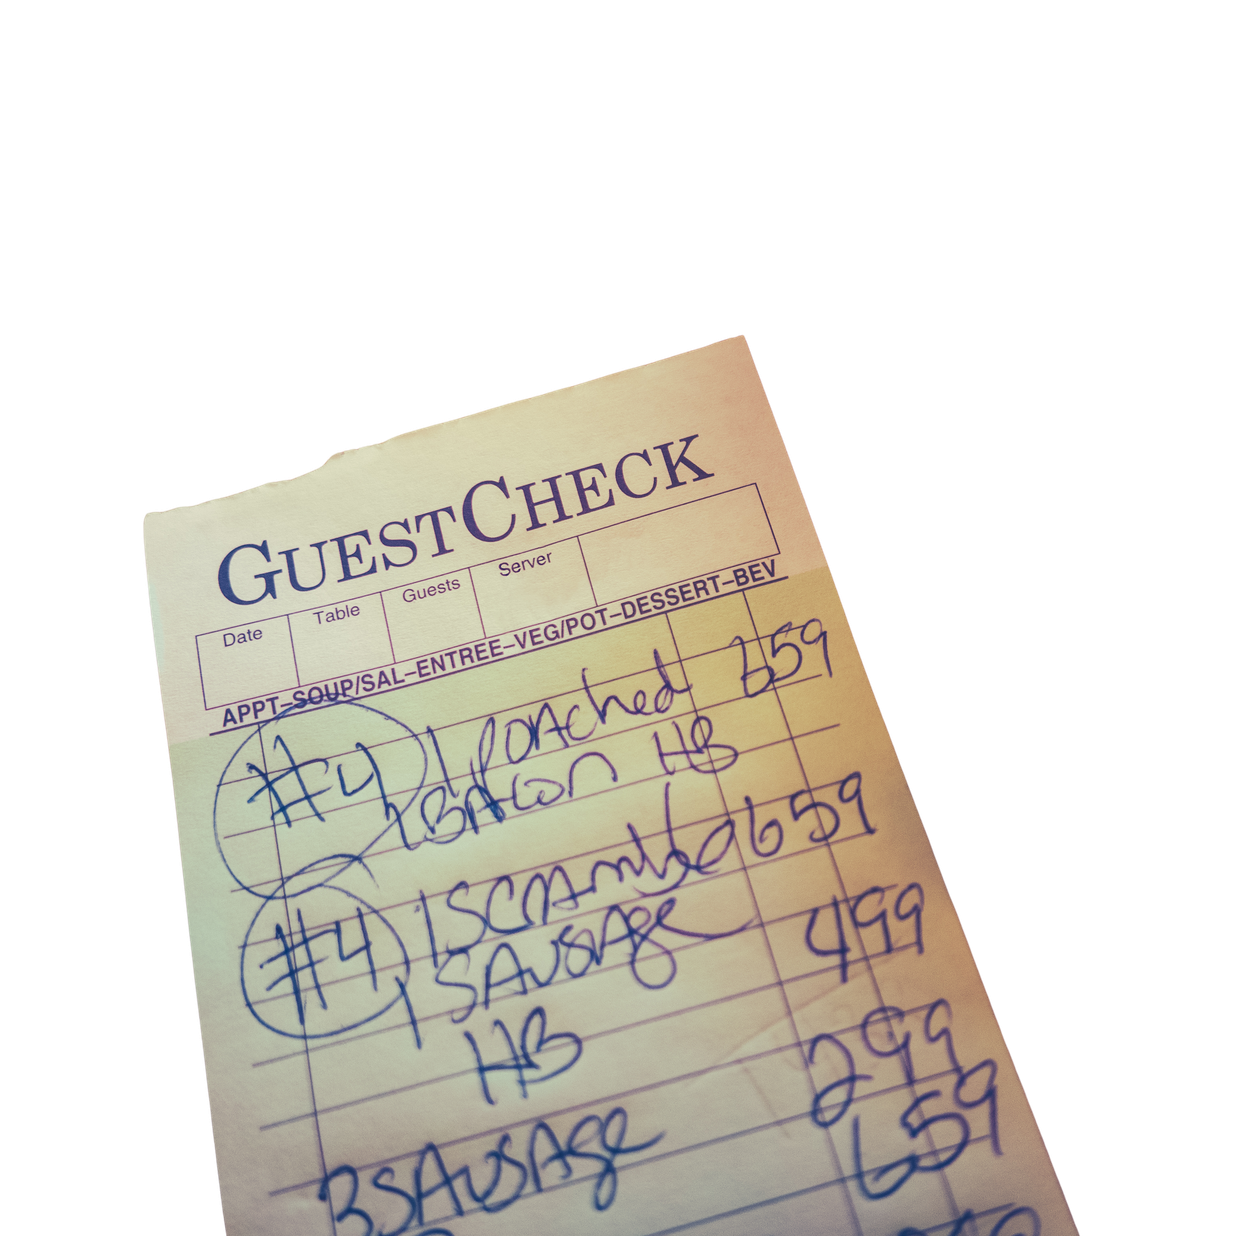 GUESTCHECK
Date Table Guests Server
APPT-SOUP/SAL-ENTREE-VEG/POT-DESSERT-BEV
#4 1 POAched 659
1 BAcon HB
#4 1 SCRAmbled 659
1 SAUSAge 499
HB
299
3 SAUSAge 659